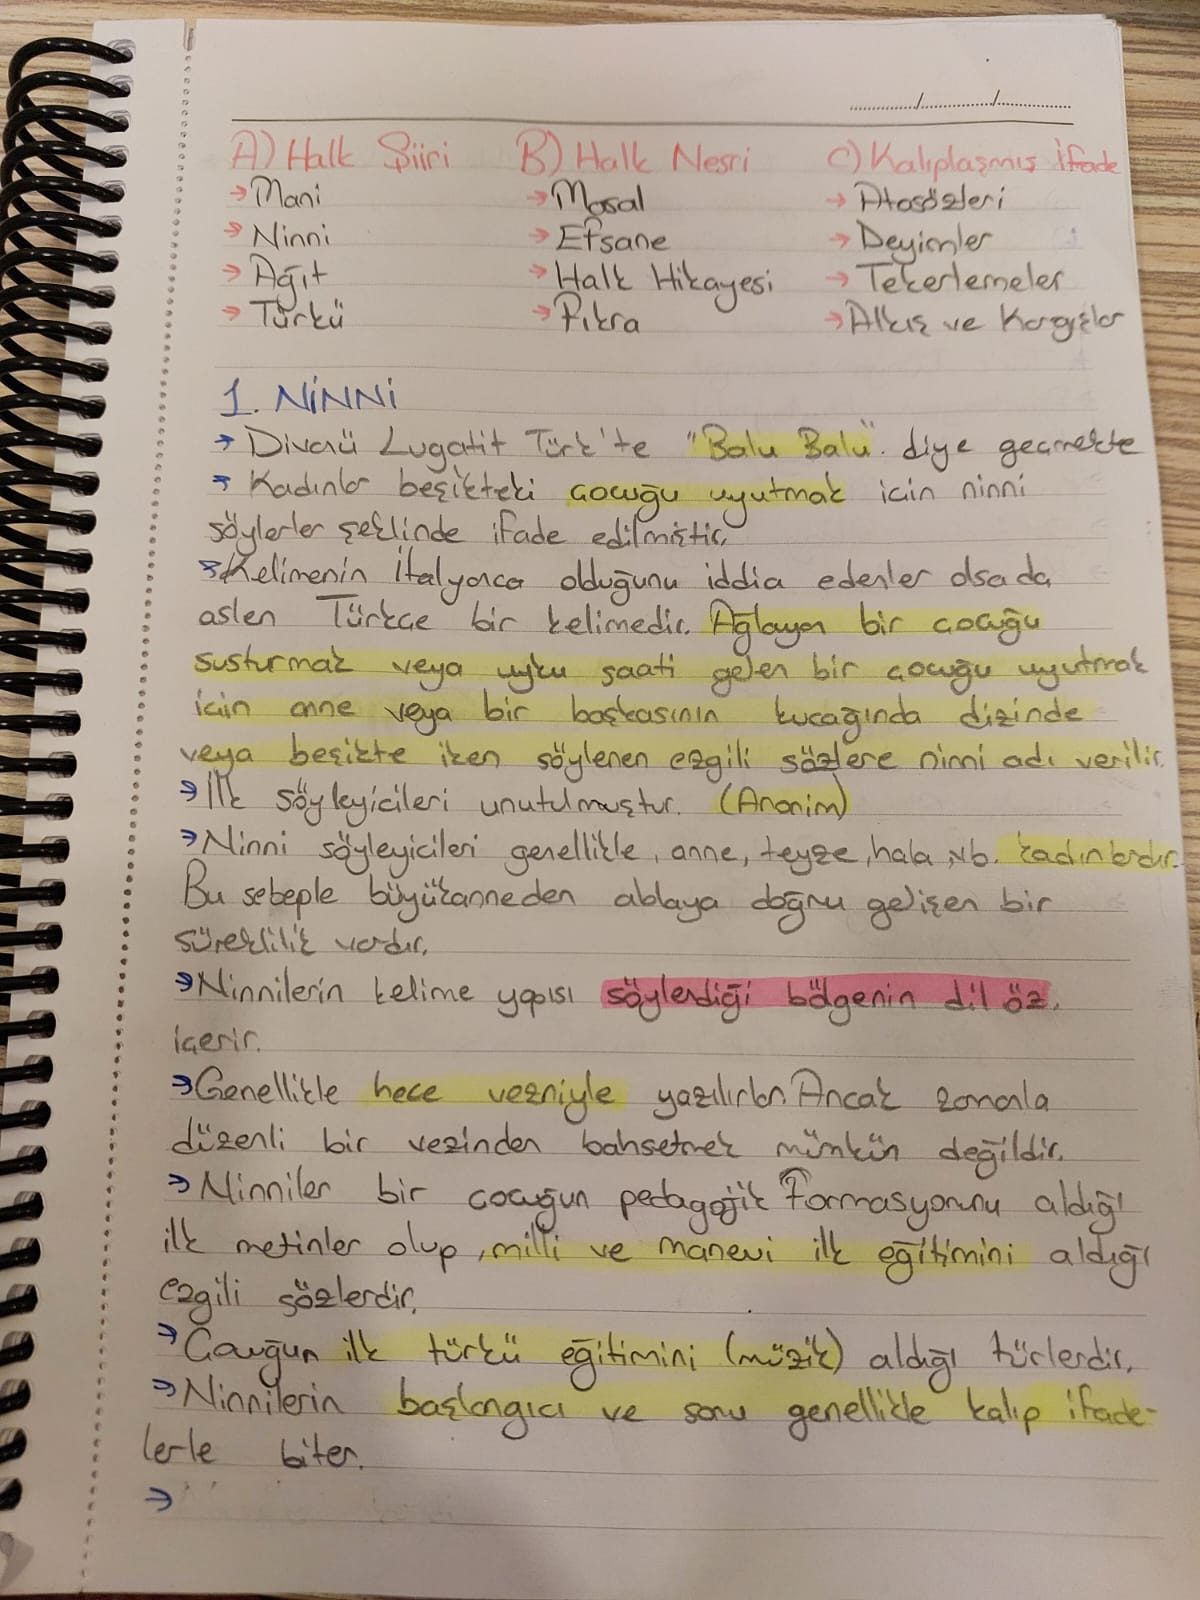 A) Halk Şiiri B) Halk Nesri C) Kalıplaşmış İfade
→ Mani → Masal → Atasözleri
→ Ninni → Efsane → Deyimler
→ Ağıt → Halk Hikayesi → Tekerlemeler
→ Türkü → Fıkra → Alkış ve Kargışlar
1. NİNNİ
→ Divanü Lugatit Türk'te "Balu Balu" diye geçmekte
→ Kadınlar beşikteki çocuğu uyutmak için ninni
söylerler şeklinde ifade edilmiştir.
→ Kelimenin İtalyanca olduğunu iddia edenler olsada
aslen Türkçe bir kelimedir. Ağlayan bir çocuğu
susturmak veya uyku saati gelen bir çocuğu uyutmak
için anne veya bir başkasının kucağında dizinde
veya beşikte iken söylenen ezgili sözlere ninni adı verilir.
→ İlk söyleyicileri unutulmuştur. (Anonim)
→ Ninni söyleyicileri genellikle, anne, teyze, hala vb. kadınlardır.
Bu sebeple büyükanneden ablaya doğru gelişen bir
süreklilik vardır.
→ Ninnilerin kelime yapısı söylendiği bölgenin dil öz.
içerir.
→ Genellikle hece vezniyle yazılırlar. Ancak zamanla
düzenli bir vezinden bahsetmek mümkün değildir.
→ Ninniler bir çocuğun pedagojik formasyonunu aldığı
ilk metinler olup, milli ve manevi ilk eğitimini aldığı
ezgili sözlerdir.
→ Çocuğun ilk türkü eğitimini (müzik) aldığı türlerdir.
→ Ninnilerin başlangıcı ve sonu genellikle kalıp ifade-
lerle biter.
→